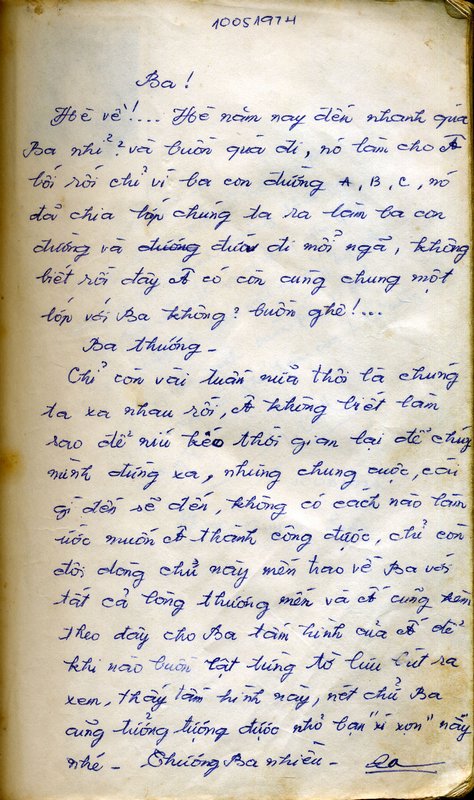 10051974
Ba !
Hè về !... Hè năm nay đến nhanh quá
Ba nhỉ ? và buồn quá đi, nó làm cho Á
bối rối chỉ vì ba con đường A, B, C, nó
đả chia lớp chúng ta ra làm ba con
đường và đứa đi mổi ngã, không
biết rồi đây Á có còn cùng chung một
lớp với Ba không ? buồn ghê !...
Ba thương -
Chỉ còn vài tuần nửa thôi là chúng
ta xa nhau rồi, Á không biết làm
sao để níu kéo thời gian lại để chúng
mình đừng xa, nhưng chung cuộc, cái
gì đến sẽ đến, không có cách nào làm
ước muốn Á thành công được, chỉ còn
đôi dòng chử này mến trao về Ba với
tất cả lòng thương mến và Á cũng kèm
theo đây cho Ba tấm hình của Á để
khi nào buồn lật từng tờ lưu bút ra
xem, thấy tấm hình này, nét chử Ba
cũng tưởng tượng được nhỏ bạn "xí xọn" nầy
nhé - Thương Ba nhiều -